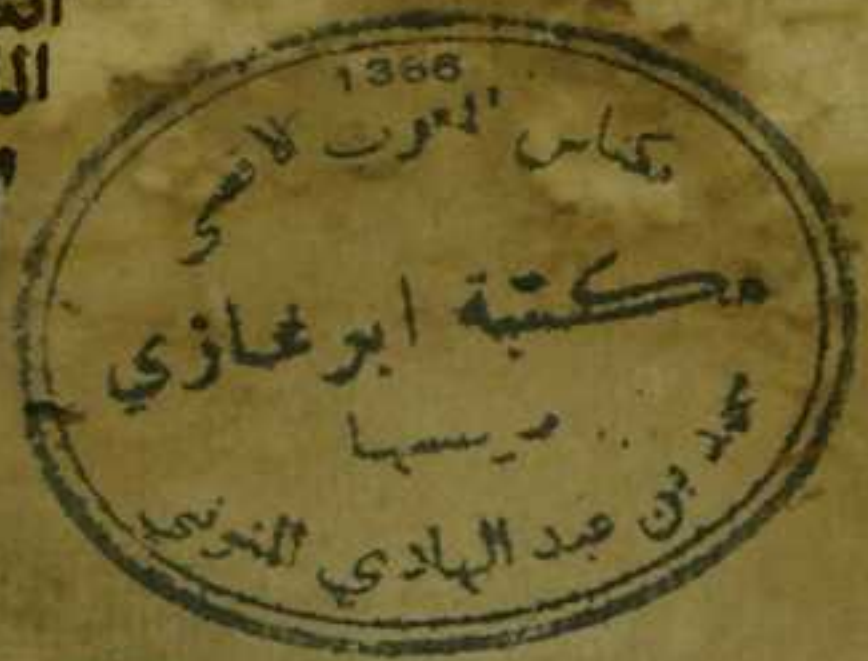 1366
مكناس المغرب لاقصى
مكتبة ابو غازي
مؤسسها
محمد بن عبد الهادي المنوني